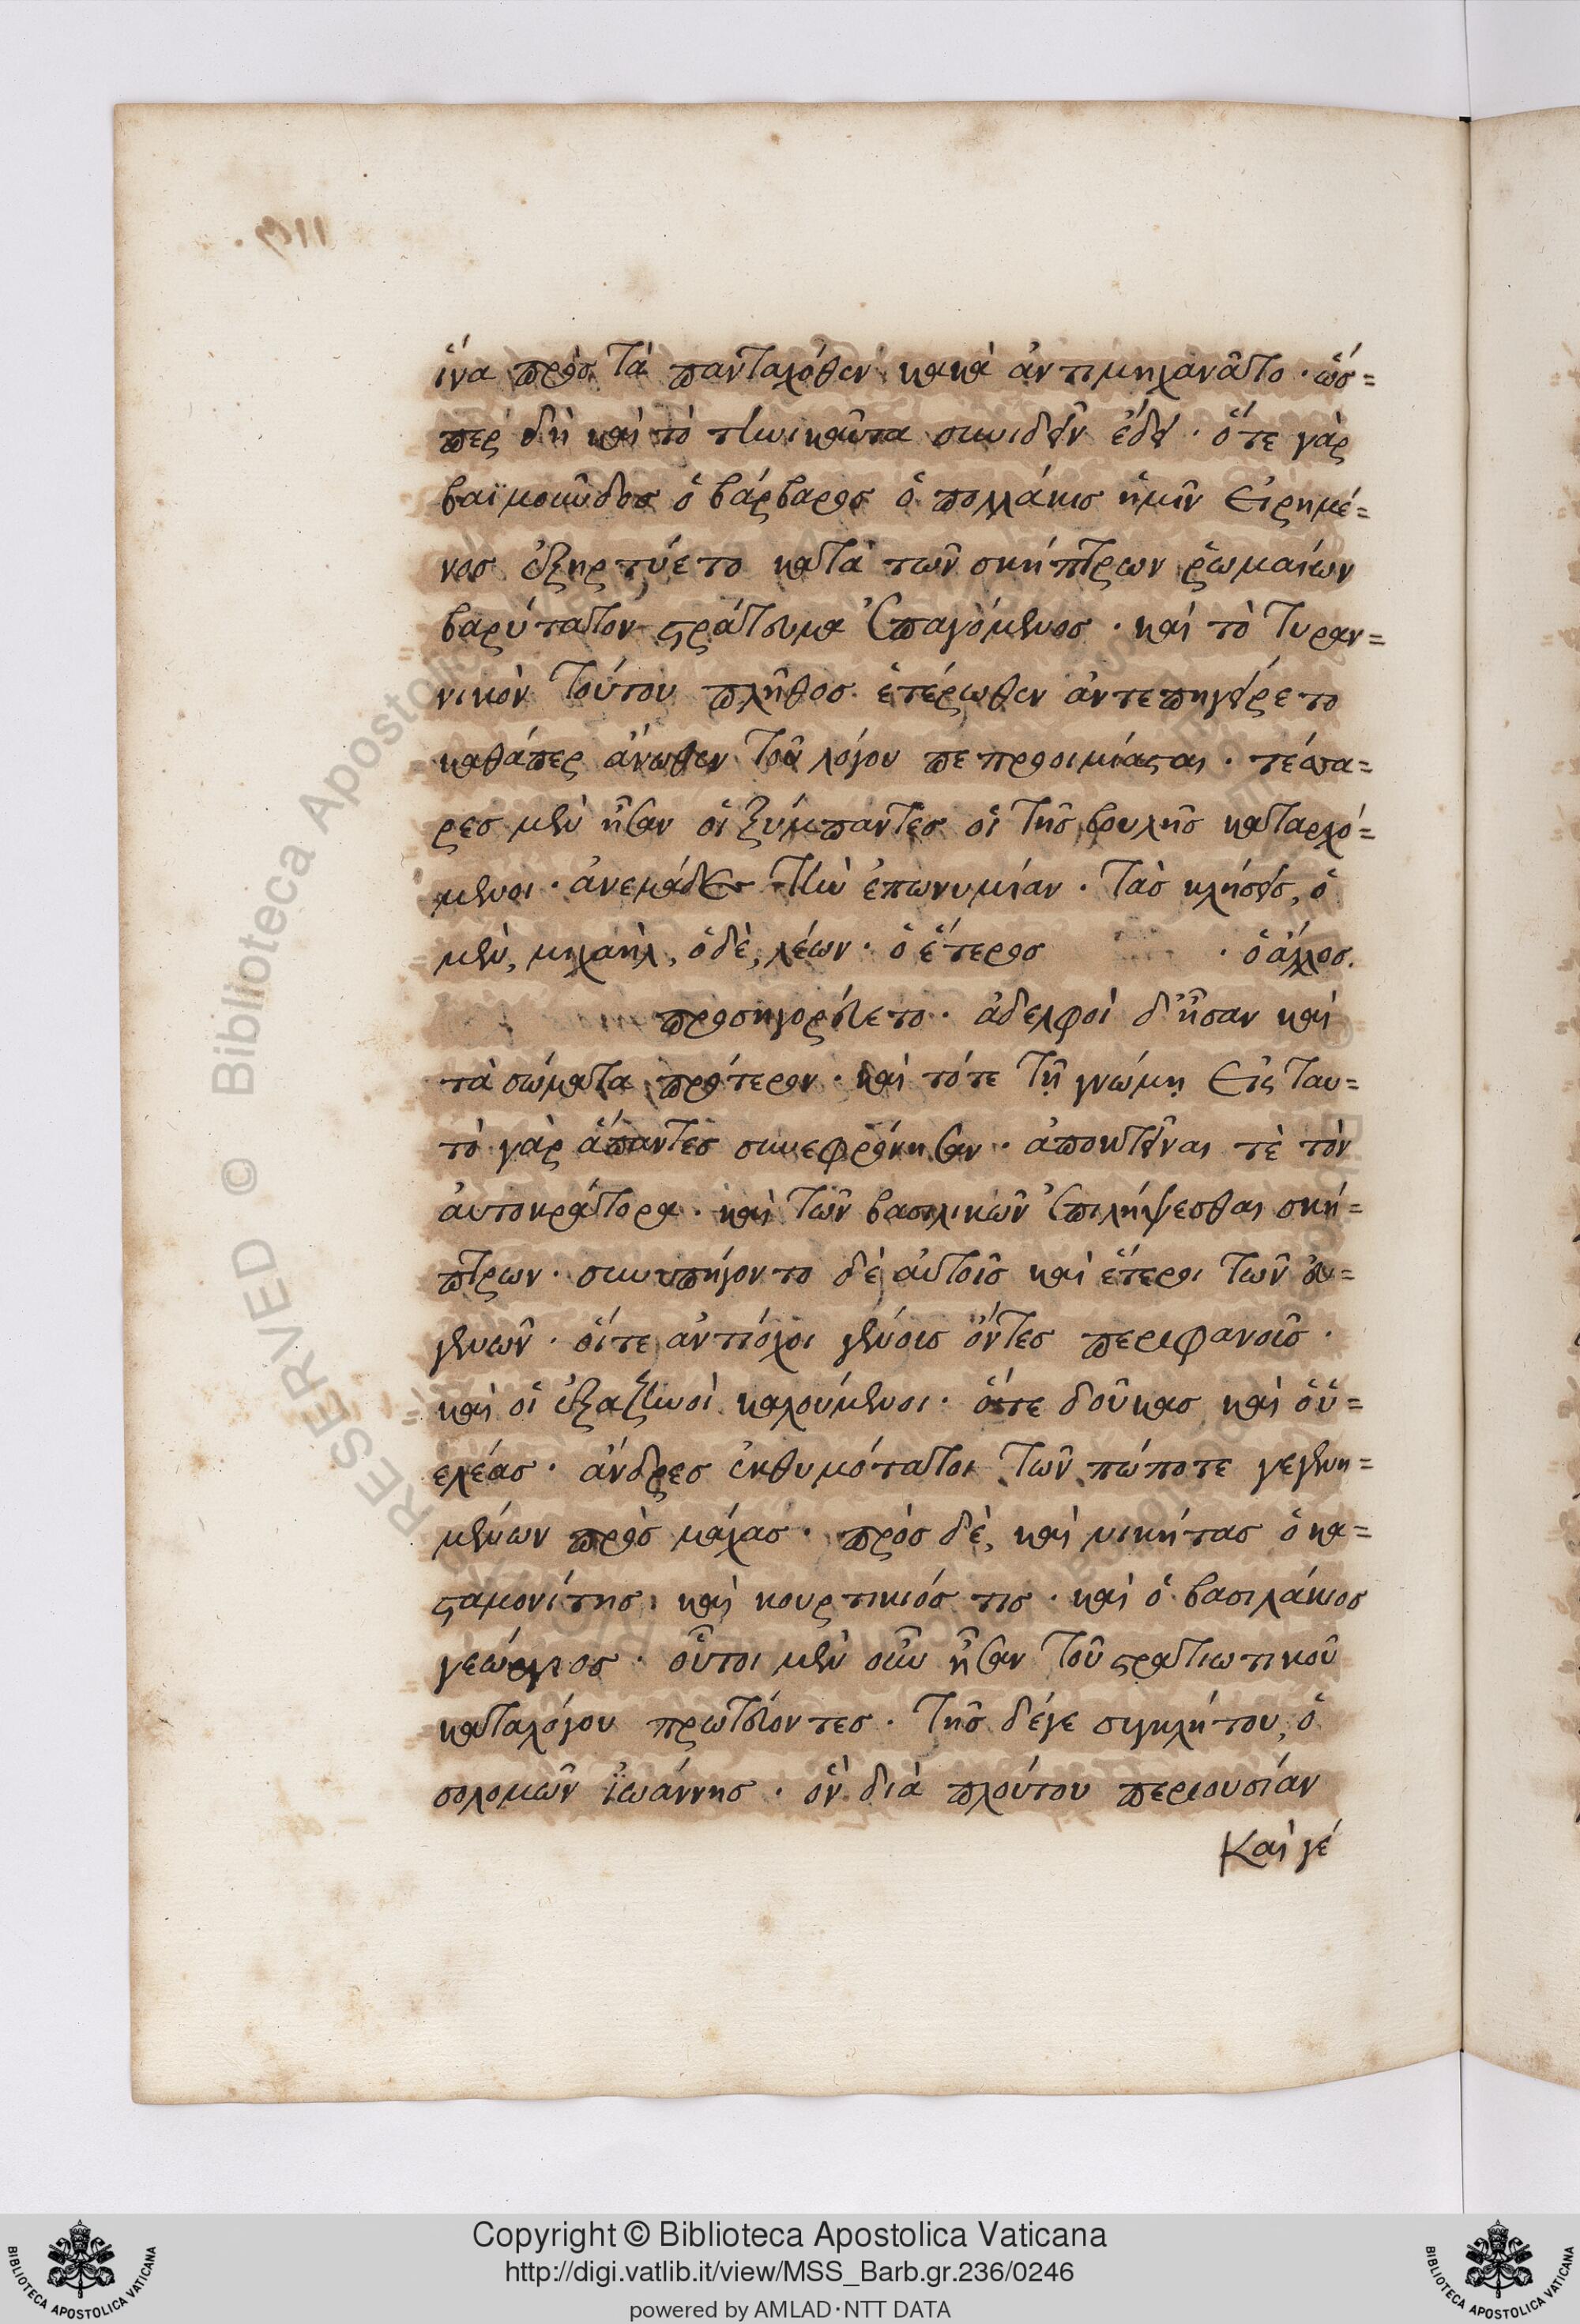 ἵνα πρὸς τὰ πανταχόθεν κακὰ ἀντιμηχανᾶτο · ὥσ=
περ δὴ καὶ τὸ τηνικαῦτα συνιδεῖν ἔδει · ὅτε γὰρ
βαϊμοῦνδος ὁ βάρβαρος ὁ πολλάκις ἡμῖν εἰρημέ=
νος ἐξηρτύετο κατὰ τῶν σκήπτρων ῥωμαίων
βαρύτατον στράτευμα ἐπαγόμενος · καὶ τὸ τυραν=
νικὸν τούτου πλῆθος ἑτέρωθεν ἀντεπηγείρετο
καθάπερ ἄνωθεν τοῦ λόγου πεπροοιμίασται · τέσσα=
ρες μὲν ἦσαν οἱ ξύμπαντες οἱ τῆς βουλῆς καταρχό=
μενοι · ἀνεμάδες τὴν ἐπωνυμίαν · τὰς κλήσεις, ὁ
μὲν, μιχαὴλ, ὁ δὲ, λέων · ὁ ἕτερος · ὁ ἄλλος.
προσηγορεύετο · ἀδελφοὶ δ' ἦσαν καὶ
τὰ σώματα πρότερον · καὶ τότε τῇ γνώμῃ εἰς ταυ=
τὸ γὰρ ἅπαντες συνεφρόνησαν · ἀποκτεῖναι τὲ τὸν
αὐτοκράτορα · καὶ τῶν βασιλικῶν ἐπιλήψεσθαι σκή=
πτρων · συνυπήγοντο δὲ αὐτοῖς καὶ ἕτεροι τῶν εὐ=
γενῶν · οἵτε ἀντίοχοι γένους ὄντες περιφανοῦς ·
καὶ οἱ ἐξαζηνοὶ καλούμενοι · ὅτε δοῦκας καὶ ὁ ὑ=
ελέας · ἄνδρες ἐκθυμότατοι τῶν πώποτε γεγενη=
μένων πρὸς μάχας · πρὸς δὲ, καὶ νικήτας ὁ κα=
σταμονίτης · καὶ κουρτίκιός τις · καὶ ὁ βασιλάκιος
γεώργιος · οὗτοι μὲν οὖν ἦσαν τοῦ στρατιωτικοῦ
καταλόγου πρωτεύοντες · τῆς δέγε συγκλήτου, ὁ
σολομῶν ἰωάννης · ὃν διὰ πλούτου περιουσίαν
Καὶ γέ
Copyright © Biblioteca Apostolica Vaticana
http://digi.vatlib.it/view/MSS_Barb.gr.236/0246
powered by AMLAD·NTT DATA
BIBLIOTECA APOSTOLICA VATICANA
BIBLIOTECA APOSTOLICA VATICANA